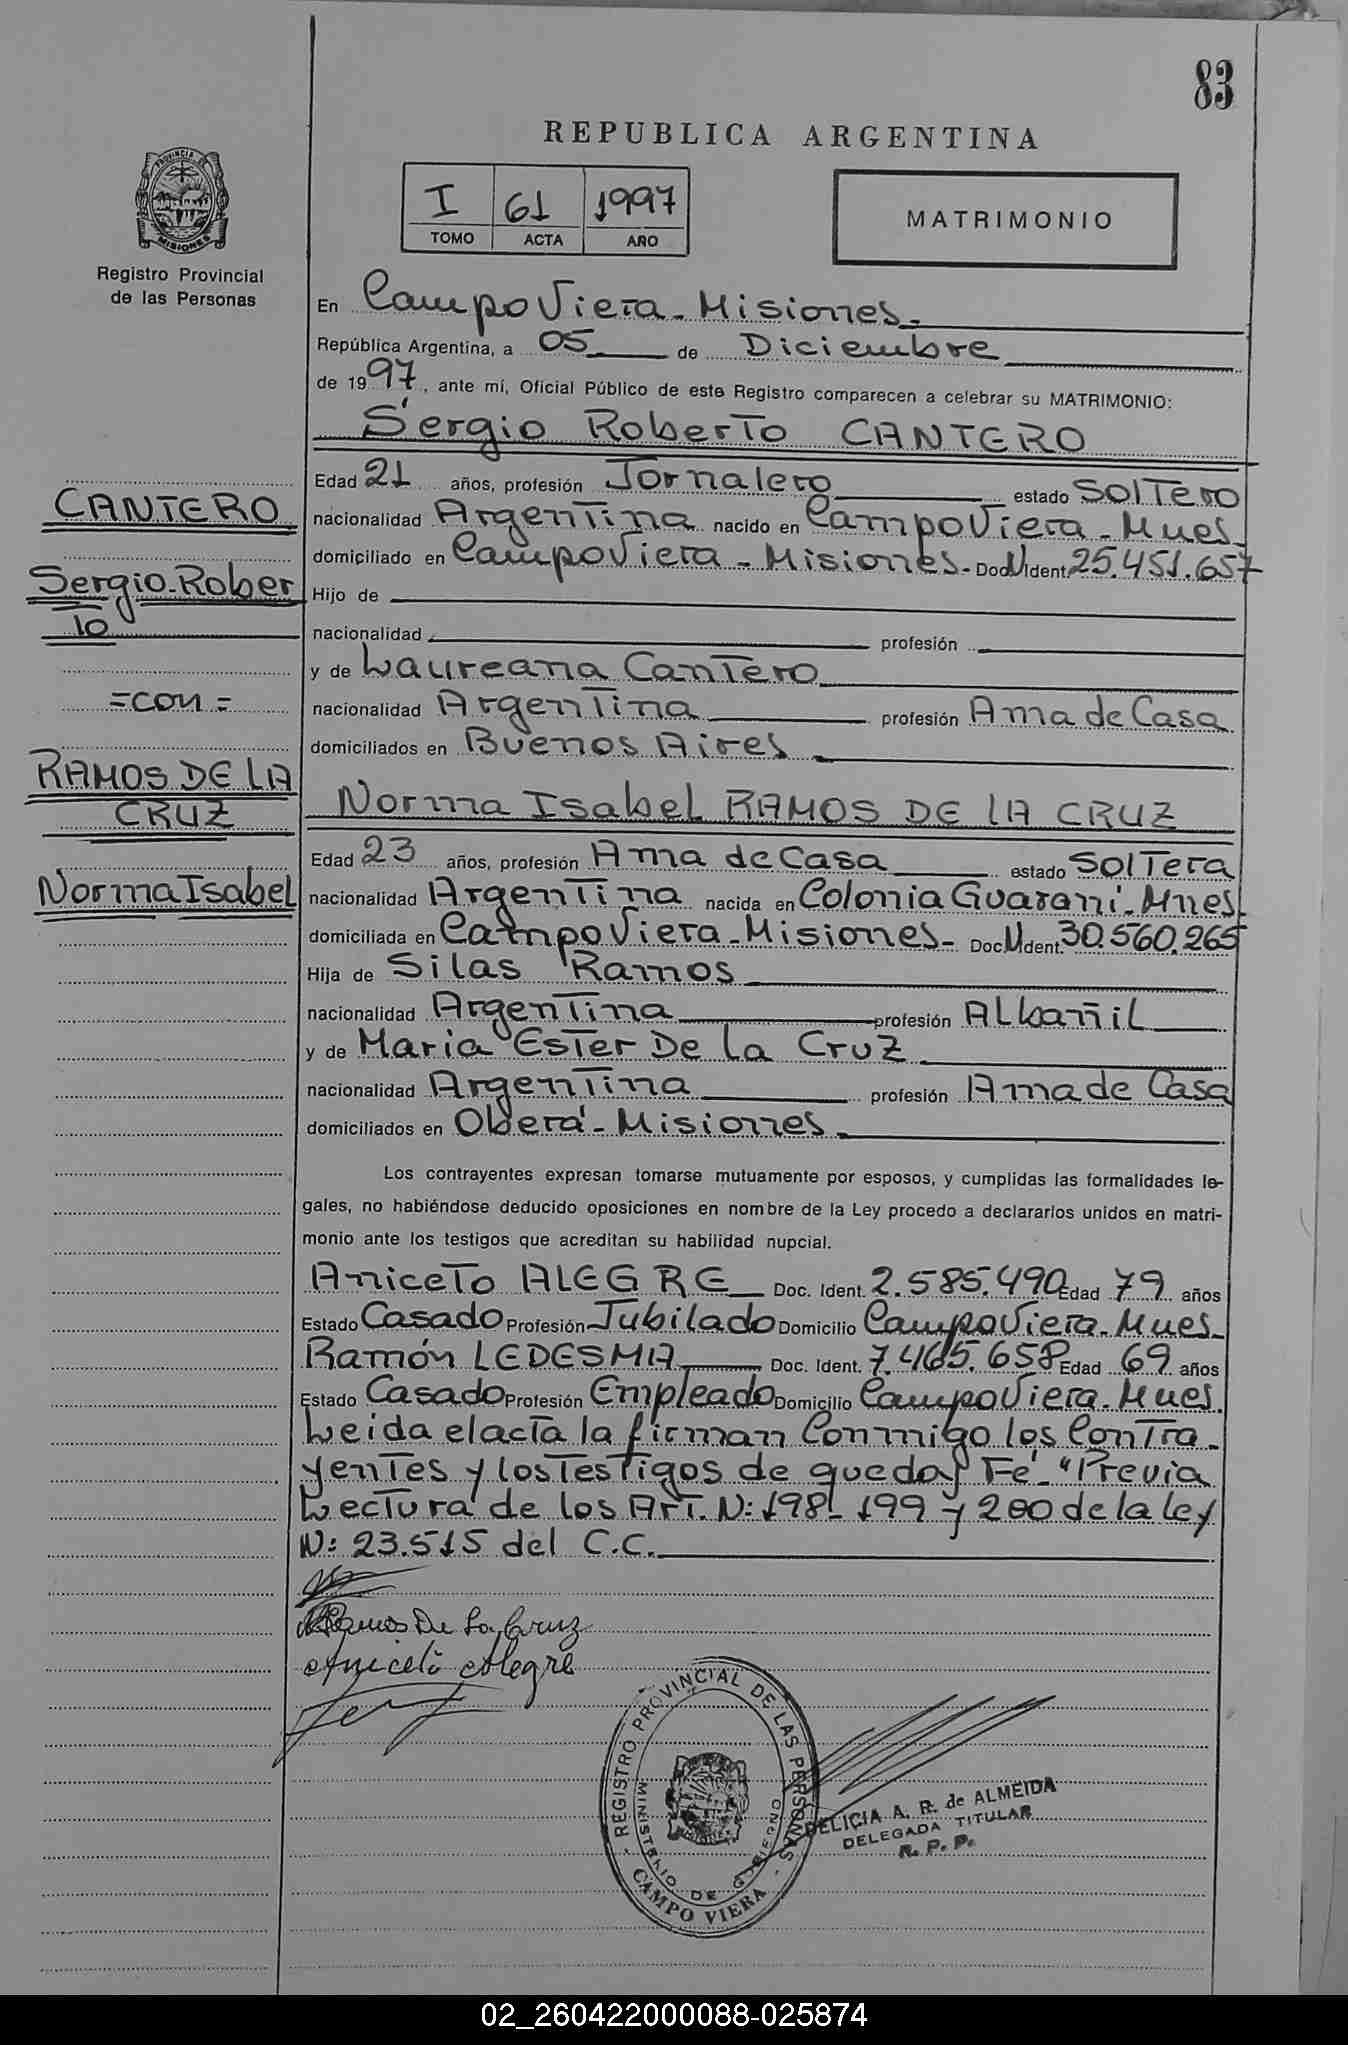 83
REPUBLICA ARGENTINA
PROVINCIA DE
MISIONES
Registro Provincial
de las Personas
I 61 1997
TOMO ACTA AÑO
MATRIMONIO
En Campo Viera - Misiones.
República Argentina, a 05 de Diciembre
de 1997, ante mí, Oficial Público de este Registro comparecen a celebrar su MATRIMONIO:
Sergio Roberto CANTERO
Edad 21 años, profesión Jornalero estado Soltero
nacionalidad Argentina nacido en Campo Viera - Mnes.
domiciliado en Campo Viera - Misiones - Doc. N Ident. 25.451.657
Hijo de
nacionalidad profesión
y de Laureana Cantero
nacionalidad Argentina profesión Ama de Casa
domiciliados en Buenos Aires
CANTERO
Sergio Rober
to
= con =
RAMOS DE LA
CRUZ
Norma Isabel
Norma Isabel RAMOS DE LA CRUZ
Edad 23 años, profesión Ama de Casa estado Soltera
nacionalidad Argentina nacida en Colonia Guaraní - Mnes.
domiciliada en Campo Viera - Misiones - Doc. N Ident. 30.560.265
Hija de Silas Ramos
nacionalidad Argentina profesión Albañil
y de Maria Ester De La Cruz
nacionalidad Argentina profesión Ama de Casa
domiciliados en Oberá - Misiones
Los contrayentes expresan tomarse mutuamente por esposos, y cumplidas las formalidades le-
gales, no habiéndose deducido oposiciones en nombre de la Ley procedo a declararlos unidos en matri-
monio ante los testigos que acreditan su habilidad nupcial.
Aniceto ALEGRE Doc. Ident. 2.585.490 Edad 79 años
Estado Casado Profesión Jubilado Domicilio Campo Viera - Mnes.
Ramón LEDESMA Doc. Ident. 7.465.658 Edad 69 años
Estado Casado Profesión Empleado Domicilio Campo Viera. Mnes.
Leida el acta la firman Conmigo los Contra-
yentes y los Testigos de que doy Fe - "Previa
Lectura de los Art. N: 198 - 199 y 200 de la ley
N: 23.515 del C.C.
Ramos De La Cruz
Aniceto Alegre
REGISTRO PROVINCIAL DE LAS PERSONAS
MINISTERIO DE GOBIERNO
- CAMPO VIERA -
DELICIA A. R. de ALMEIDA
DELEGADA TITULAR
R. P. P.
02_260422000088-025874